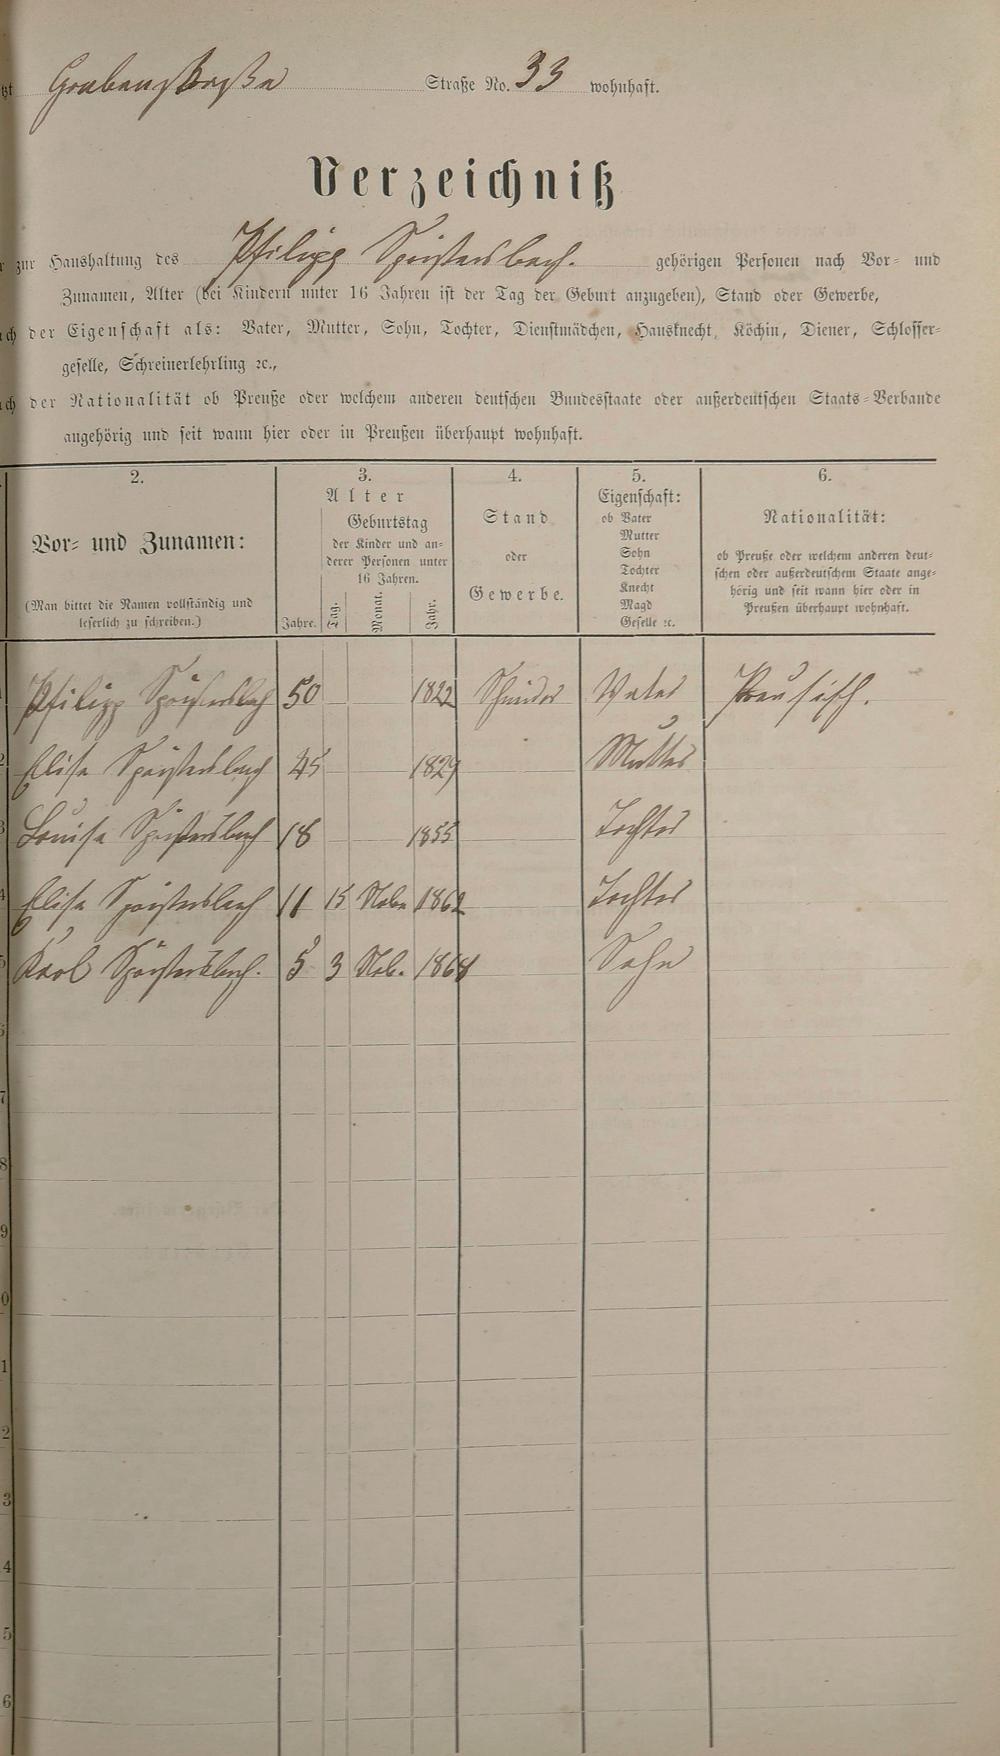 Grabenstraße Straße No. 33 wohnhaft.
Verzeichniß
zur Haushaltung des Philipp gehörigen Personen nach Vor- und
Zunamen, Alter (bei Kindern unter 16 Jahren ist der Tag der Geburt anzugeben), Stand oder Gewerbe,
der Eigenschaft als: Vater, Mutter, Sohn, Tochter, Dienstmädchen, Hausknecht, Köchin, Diener, Schlosser-
geselle, Schreinerlehrling ꝛc.,
der Nationalität ob Preuße oder welchem anderen deutschen Bundesstaate oder außerdeutschen Staats-Verbande
angehörig und seit wann hier oder in Preußen überhaupt wohnhaft.
2. 3. 4. 5. 6.
Vor- und Zunamen:
(Man bittet die Namen vollständig und
leserlich zu schreiben.)
Alter
Jahre.
Geburtstag
der Kinder und an-
derer Personen unter
16 Jahren.
Tag. Monat. Jahr.
Stand
oder
Gewerbe.
Eigenschaft:
ob Vater
Mutter
Sohn
Tochter
Knecht
Magd
Geselle ꝛc.
Nationalität:
ob Preuße oder welchem anderen deut-
schen oder außerdeutschem Staate ange-
hörig und seit wann hier oder in
Preußen überhaupt wohnhaft.
Philipp 50 1822 Vater Preusisch.
2 Elise 45 1829 Mutter
3 Louise 18 1855 Tochter
4 Elise 11 15 1862 Tochter
5 Karl 5 3 1868 Sohn
6
7
8
9
0
1
2
3
4
5
6